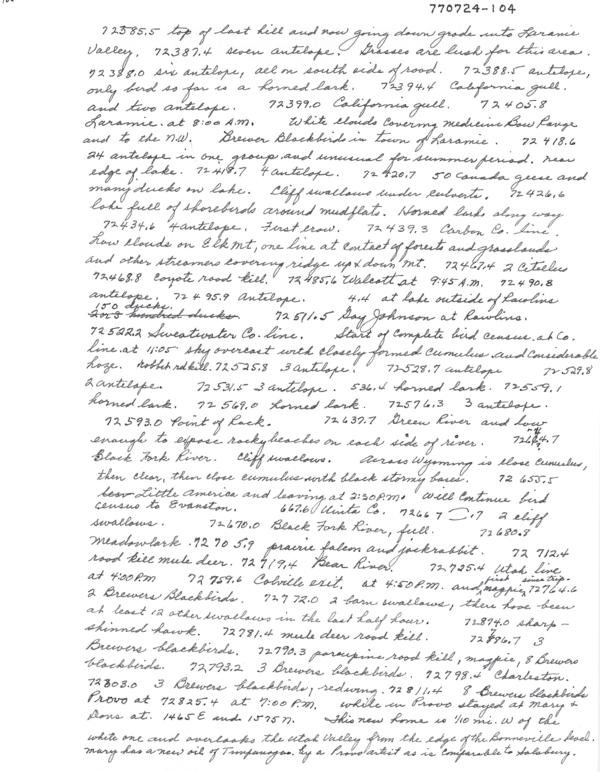 770724-104
72385.5 top of last hill and now going down grade into Laramie
Valley. 72387.4 seven antelope. Grasses are lush for this area.
72388.0 six antelope, all on south side of road. 72388.5 antelope,
only bird so far is a horned lark. 72394.4 California gull.
and two antelope. 72399.0 California gull. 72405.8
Laramie at 8:00 A.M. White clouds covering Medicine Bow Range
and to the N.W. Brewer Blackbirds in town of Laramie. 72418.6
24 antelope in one group and unusual for summer period. near
edge of lake. 72418.7 4 antelope. 72420.7 50 Canada geese and
many ducks on lake. Cliff swallows under culverts. 72426.6
lake full of shorebirds around mudflats. Horned larks along way
72434.6 4 antelope. First crow. 72439.3 Carbon Co. line.
Low clouds on Elk Mt, one line at contact of forests and grasslands
and other streamers covering ridge up & down Mt. 72467.4 2 Citellus
72468.8 Coyote road kill. 72485.6 Walcott at 9:45 A.M. 72490.8
antelope. 72495.9 antelope. 4.4 at lake outside of Rawlins
150 ducks.
2 or 3 hundred ducks. 72511.5 Gay Johnson at Rawlins.
72522.2 Sweatwater Co. line. Start of complete bird census, at Co.
line at 11:05 sky overcast with closely formed cumulus and considerable
haze. Rabbit rd kill. 72525.8 3 antelope. 72528.7 antelope 72529.8
2 antelope. 72531.5 3 antelope. 536.4 horned lark. 72559.1
horned lark. 72569.0 horned lark. 72576.3 3 antelope.
72593.0 Point of Rock. 72637.7 Green River and low
enough to expose rocky beaches on each side of river.
Black Fork River. Cliff swallows. Across Wyoming is close cumulus,
then clear, then close cumulus with black stormy bases. 72655.5
Little America and leaving at 2:30 PM. Will continue bird
census to Evanston. 667.6 Uinta Co. 7266 7 .7 2 cliff
swallows. 72670.0 Black Fork River, full. 72680.8
meadowlark. 72705.9 prairie falcon and jackrabbit. 72712.4
road kill mule deer. 72719.4 Bear River. 72725.4 Utah line
at 4:00 PM 72759.6 Colville exit, at 4:50 P.M. and first since trip. magpie, 72764.6
2 Brewers Blackbirds. 72772.0 2 barn swallows, there have been
at least 12 other swallows in the last half hour. 72874.0 sharp-
shinned hawk. 72781.4 mule deer road kill. 72786.7 3
Brewers blackbirds. 72790.3 porcupine road kill, magpie, 8 Brewers
blackbirds. 72793.2 3 Brewers blackbirds. 72798.4 Charleston.
72803.0 3 Brewers blackbirds, redwing. 72811.4 8 Brewers blackbirds
Provo at 72825.4 at 7:00 P.M. while in Provo stayed at Mary &
Dons at 1465 E and 1575 N. This new home is 1/10 mi. W of the
white one and overlooks the Utah Valley from the edge of the Bonneville level.
Mary has a new oil of Timpanogas by a Provo artist as is comparable to Salsbury.